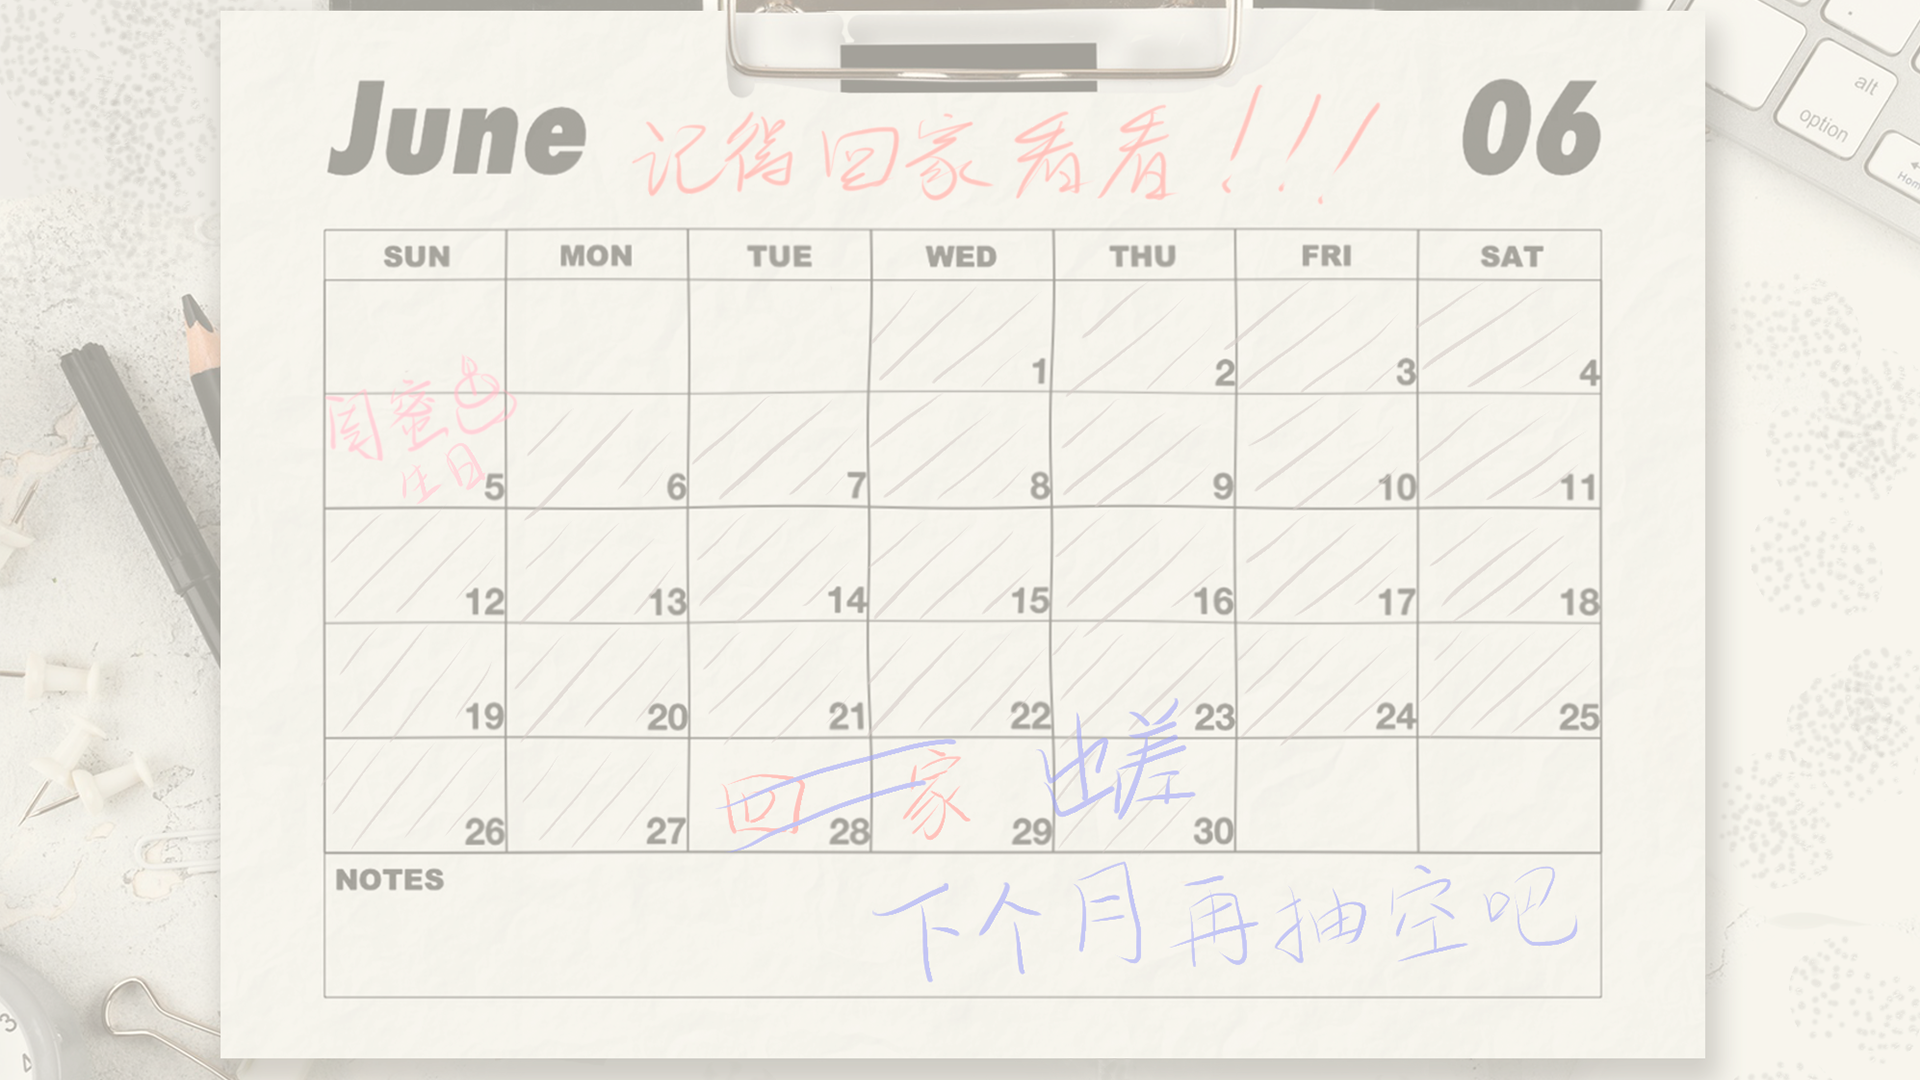 June 记得回家看看！！！ 06
SUN MON TUE WED THU FRI SAT
1 2 3 4
闺蜜
生日
5 6 7 8 9 10 11
12 13 14 15 16 17 18
19 20 21 22 23 24 25
回家 出差
26 27 28 29 30
NOTES
下个月再抽空吧
alt
option
Hom
3
4